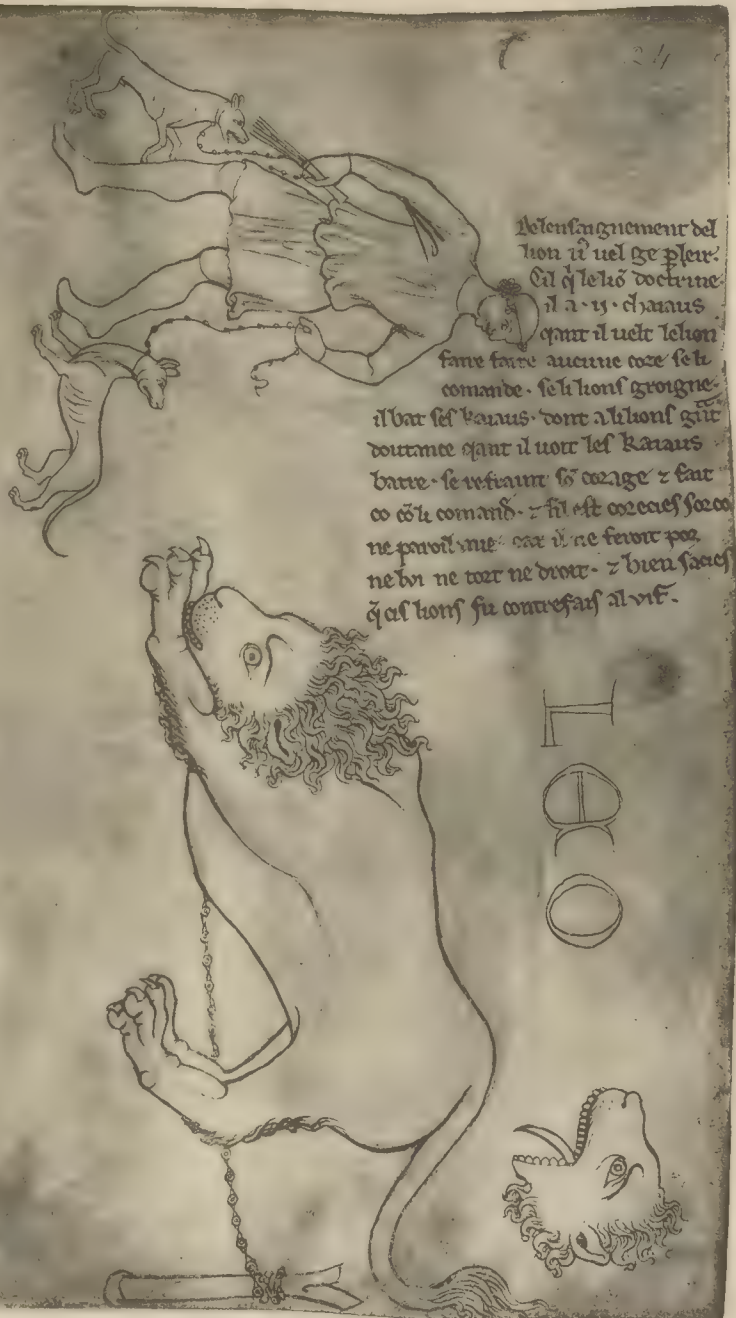 24
Delensaignement del
lion uͦ uel ge pleir.
Cil q̃ le liõ doctrine
il a · ii · chaiaus
qant il uelt le lion
faire faire aucune coze se li
comande · se li lions groigne
il bat ses kaiaus · dont a li lions gͣnt
doutance qant il uoit les kaiaus
batre · se refraint sõ corage ⁊ fait
co cõ li comand̃ · ⁊ sil est corecies sor co
ne paroil mie car il ne feroit por
nelui ne tort ne droit · ⁊ bien sacies
q̃ cis lions fu contrefais al vif ·
LEO